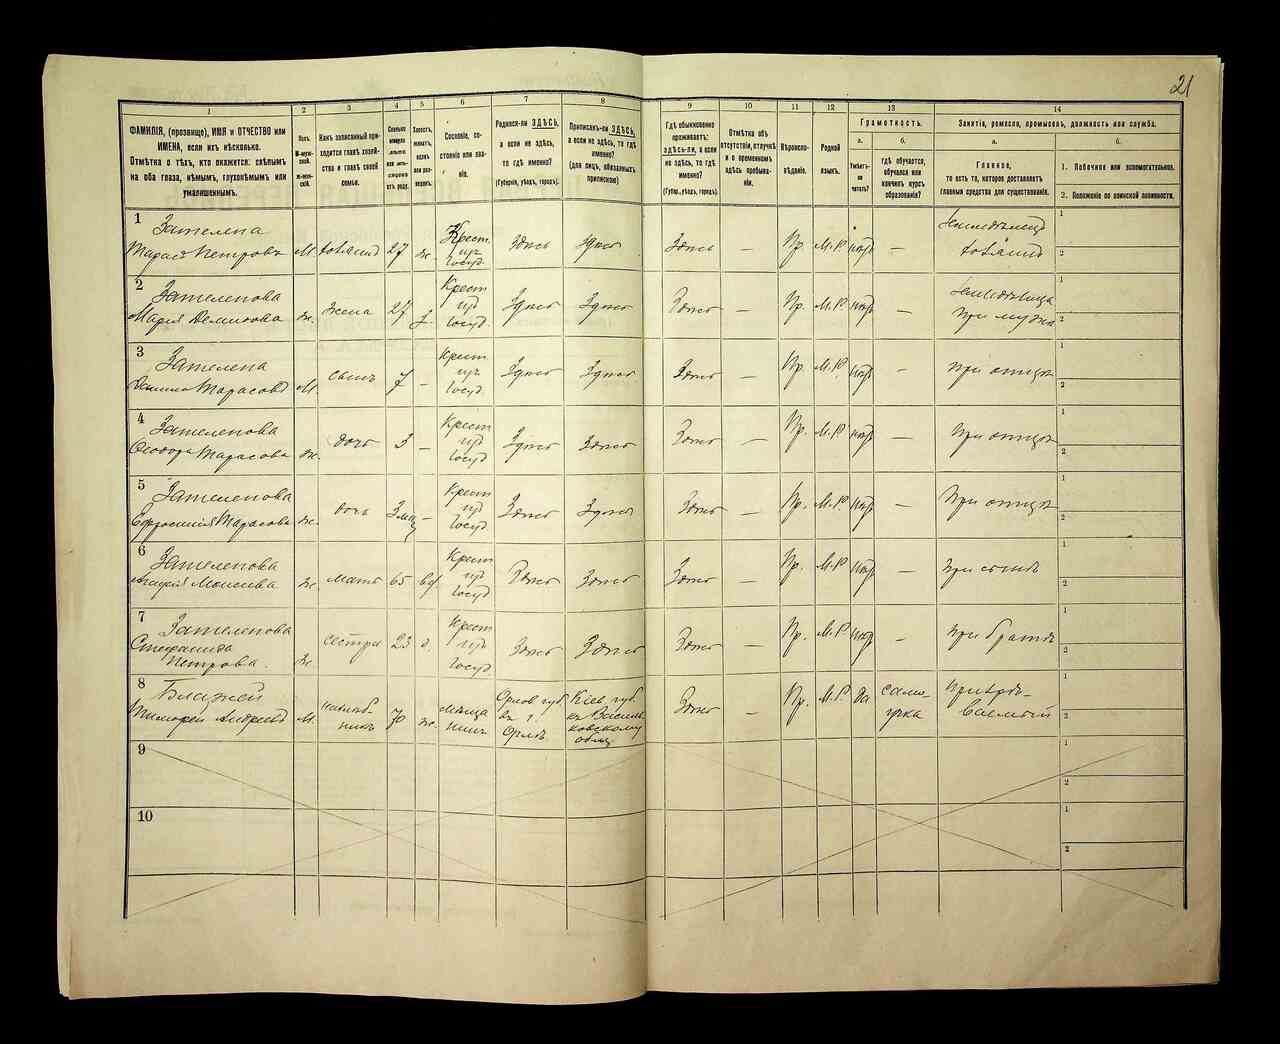 21
1
2
3
4
5
6
7
8
9
10
11
12
13
14
ФАМИЛІЯ, (прозвище), ИМЯ и ОТЧЕСТВО или
ИМЕНА, если ихъ нѣсколько.
Отмѣтка о тѣхъ, кто окажется: слѣпымъ
на оба глаза, нѣмымъ, глухонѣмымъ или
умалишеннымъ.
Полъ.
М-муж-
ской.
Ж-жен-
скій.
Какъ записанный при-
ходится главѣ хозяй-
ства и главѣ своей
семьи.
Сколько
минуло
лѣтъ
или мѣ-
сяцевъ
отъ роду.
Холостъ,
женатъ,
вдовъ
или раз-
веденъ.
Сословіе, со-
стояніе или зва-
ніе.
Родился-ли ЗДѢСЬ,
а если не здѣсь,
то гдѣ именно?
(Губернія, уѣздъ, городъ).
Приписанъ-ли ЗДѢСЬ,
а если не здѣсь, то гдѣ
именно?
(для лицъ, обязанныхъ
припискою)
Гдѣ обыкновенно
проживаетъ:
здѣсь-ли, а если
не здѣсь, то гдѣ
именно?
(Губер.,уѣздъ, городъ).
Отмѣтка объ
отсутствіи, отлучкѣ
и о временномъ
здѣсь пребыва-
ніи.
Вѣроиспо-
вѣданіе.
Родной
языкъ.
Грамотность.
а.
б.
Умѣетъ-
ли
читать?
гдѣ обучается,
обучался или
кончилъ курсъ
образованія?
Занятіе, ремесло, промыселъ, должность или служба.
а.
б.
Главное,
то есть то, которое доставляетъ
главныя средства для существованія.
1. Побочное или вспомогательное.
2. Положеніе по воинской повинности.
1
Зателепа
Тарасъ Петровъ
М.
хозяинъ
27
ж.
Крест.
изъ
госуд.
Здѣсь
Здѣсь
Здѣсь
—
Пр.
М.Р.
нѣтъ
—
Земледѣлецъ
хозяинъ
1
2
2
Зателепова
Марія Демидова
ж.
жена
27
з.
Крест
изъ
госуд.
Здѣсь
Здѣсь
Здѣсь
—
Пр.
М.Р.
нѣтъ
—
при мужѣ
1
2
3
Зателепа
Данило Тарасовъ
М.
сынъ
7
—
Крест.
изъ
госуд.
Здѣсь
Здѣсь
Здѣсь
—
Пр.
М.Р.
нѣтъ
—
при отцѣ
1
2
4
Зателепова
Феодора Тарасова
ж.
дочь
3
—
Крест
изъ
госуд
Здѣсь
Здѣсь
Здѣсь
—
Пр.
М.Р.
нѣтъ
—
при отцѣ
1
2
5
Зателепова
Евфросинія Тарасова
ж.
дочь
3 мѣц
—
Крест
изъ
госуд
Здѣсь
Здѣсь
Здѣсь
—
Пр.
М.Р.
нѣтъ
—
при отцѣ
1
2
6
Зателепова
Агафія Моисеева
ж.
мать
65
вд.
Крест
изъ
госуд
Здѣсь
Здѣсь
Здѣсь
—
Пр.
М.Р.
нѣтъ
—
при сынѣ
1
2
7
Зателепова
Стефанида
Петрова.
ж.
сестра
23
д.
Крест
изъ
госуд
Здѣсь
Здѣсь
Здѣсь
—
Пр.
М.Р.
нѣтъ
—
при братѣ
1
2
8
Тимофей Андреевъ
М.
70
ж.
мѣща
нинъ
Орлов губ.
въ г.
Орлѣ
Кіев губ.
къ Василь
ковскому
общ.
Здѣсь
—
Пр.
М.Р.
да
само-
учка
Призрѣ-
ваемый
1
2
9
1
2
10
1
2